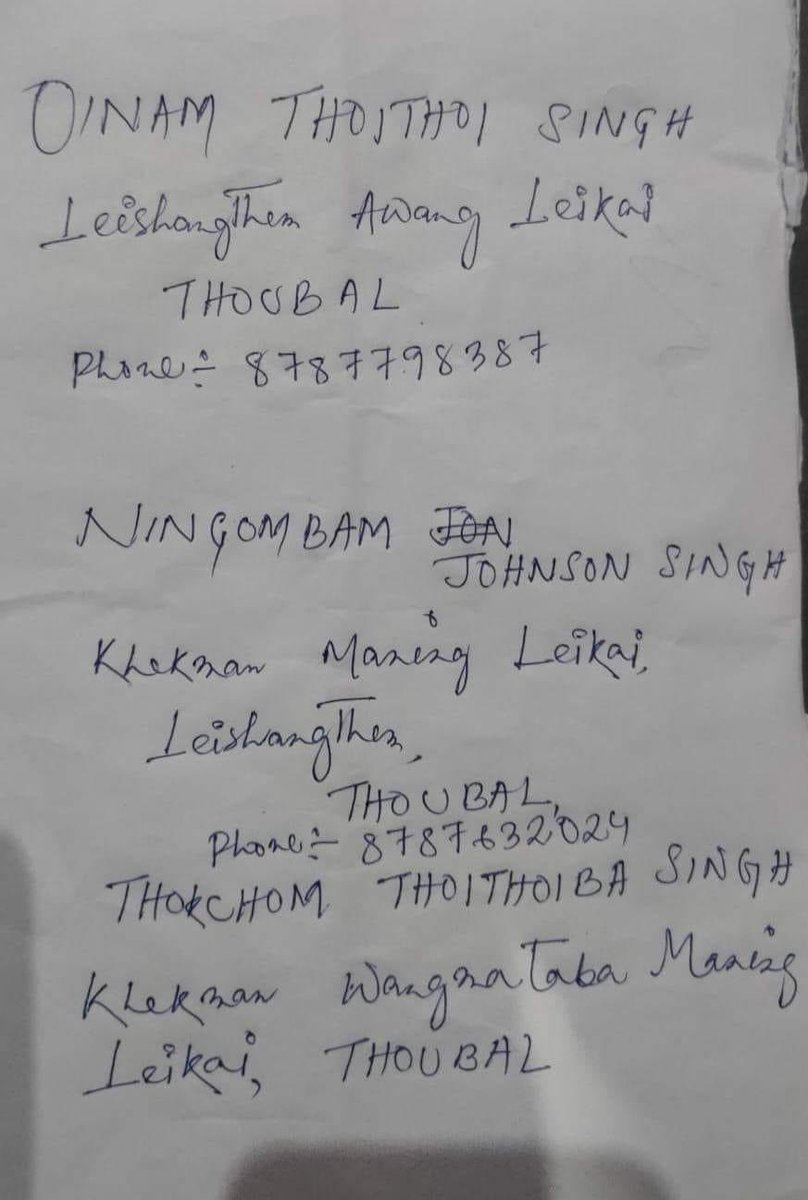 OINAM THOITHOI SINGH
Leishangthem Awang Leikai
THOUBAL
Phone:- 8787798387
NINGOMBAM JON
JOHNSON SINGH
Khekman Maning Leikai,
Leishangthem,
THOUBAL,
Phone:- 8787632024
THOKCHOM THOITHOIBA SINGH
Khekman Wangmataba Maning
Leikai, THOUBAL